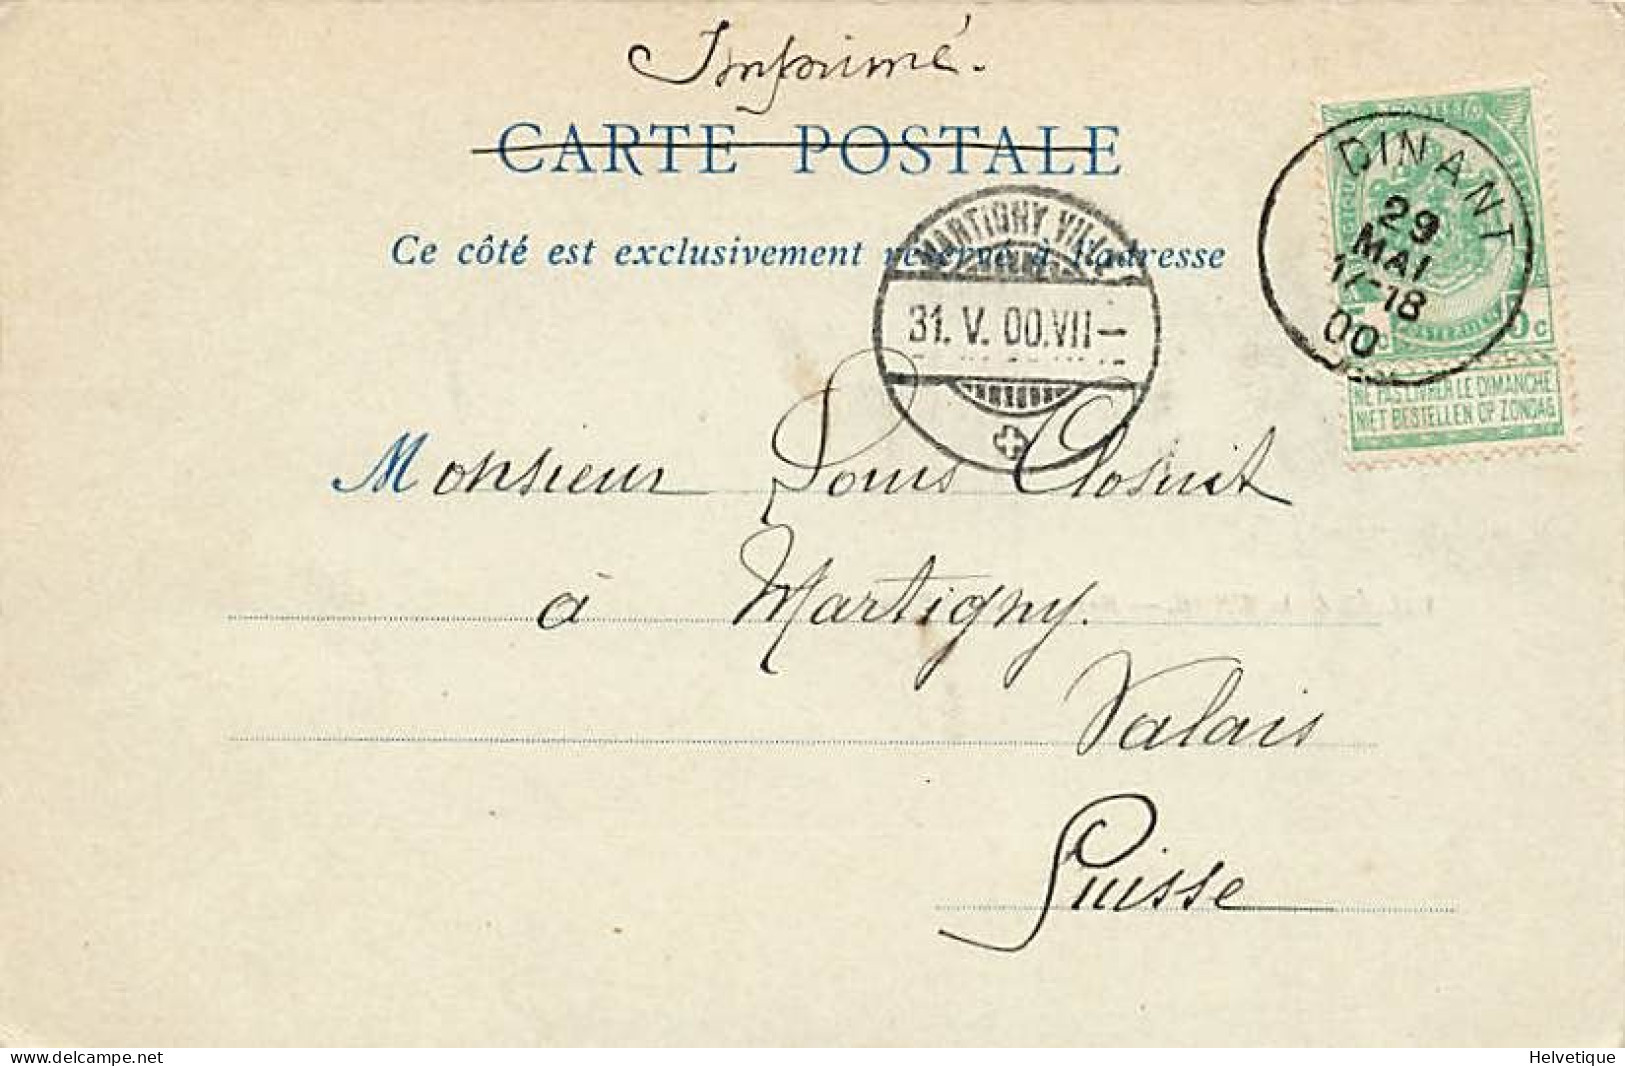 Imprimé.
CARTE POSTALE
Ce côté est exclusivement réservé à l'adresse
DINANT
29
MAI
17-18
00
MARTIGNY VILLE
31. V. 00. VII –
5 c
NE PAS LIVRER LE DIMANCHE
NIET BESTELLEN OP ZONDAG
Monsieur Louis Closuit
à Martigny.
Valais
Suisse
delcampe.net
Helvetique